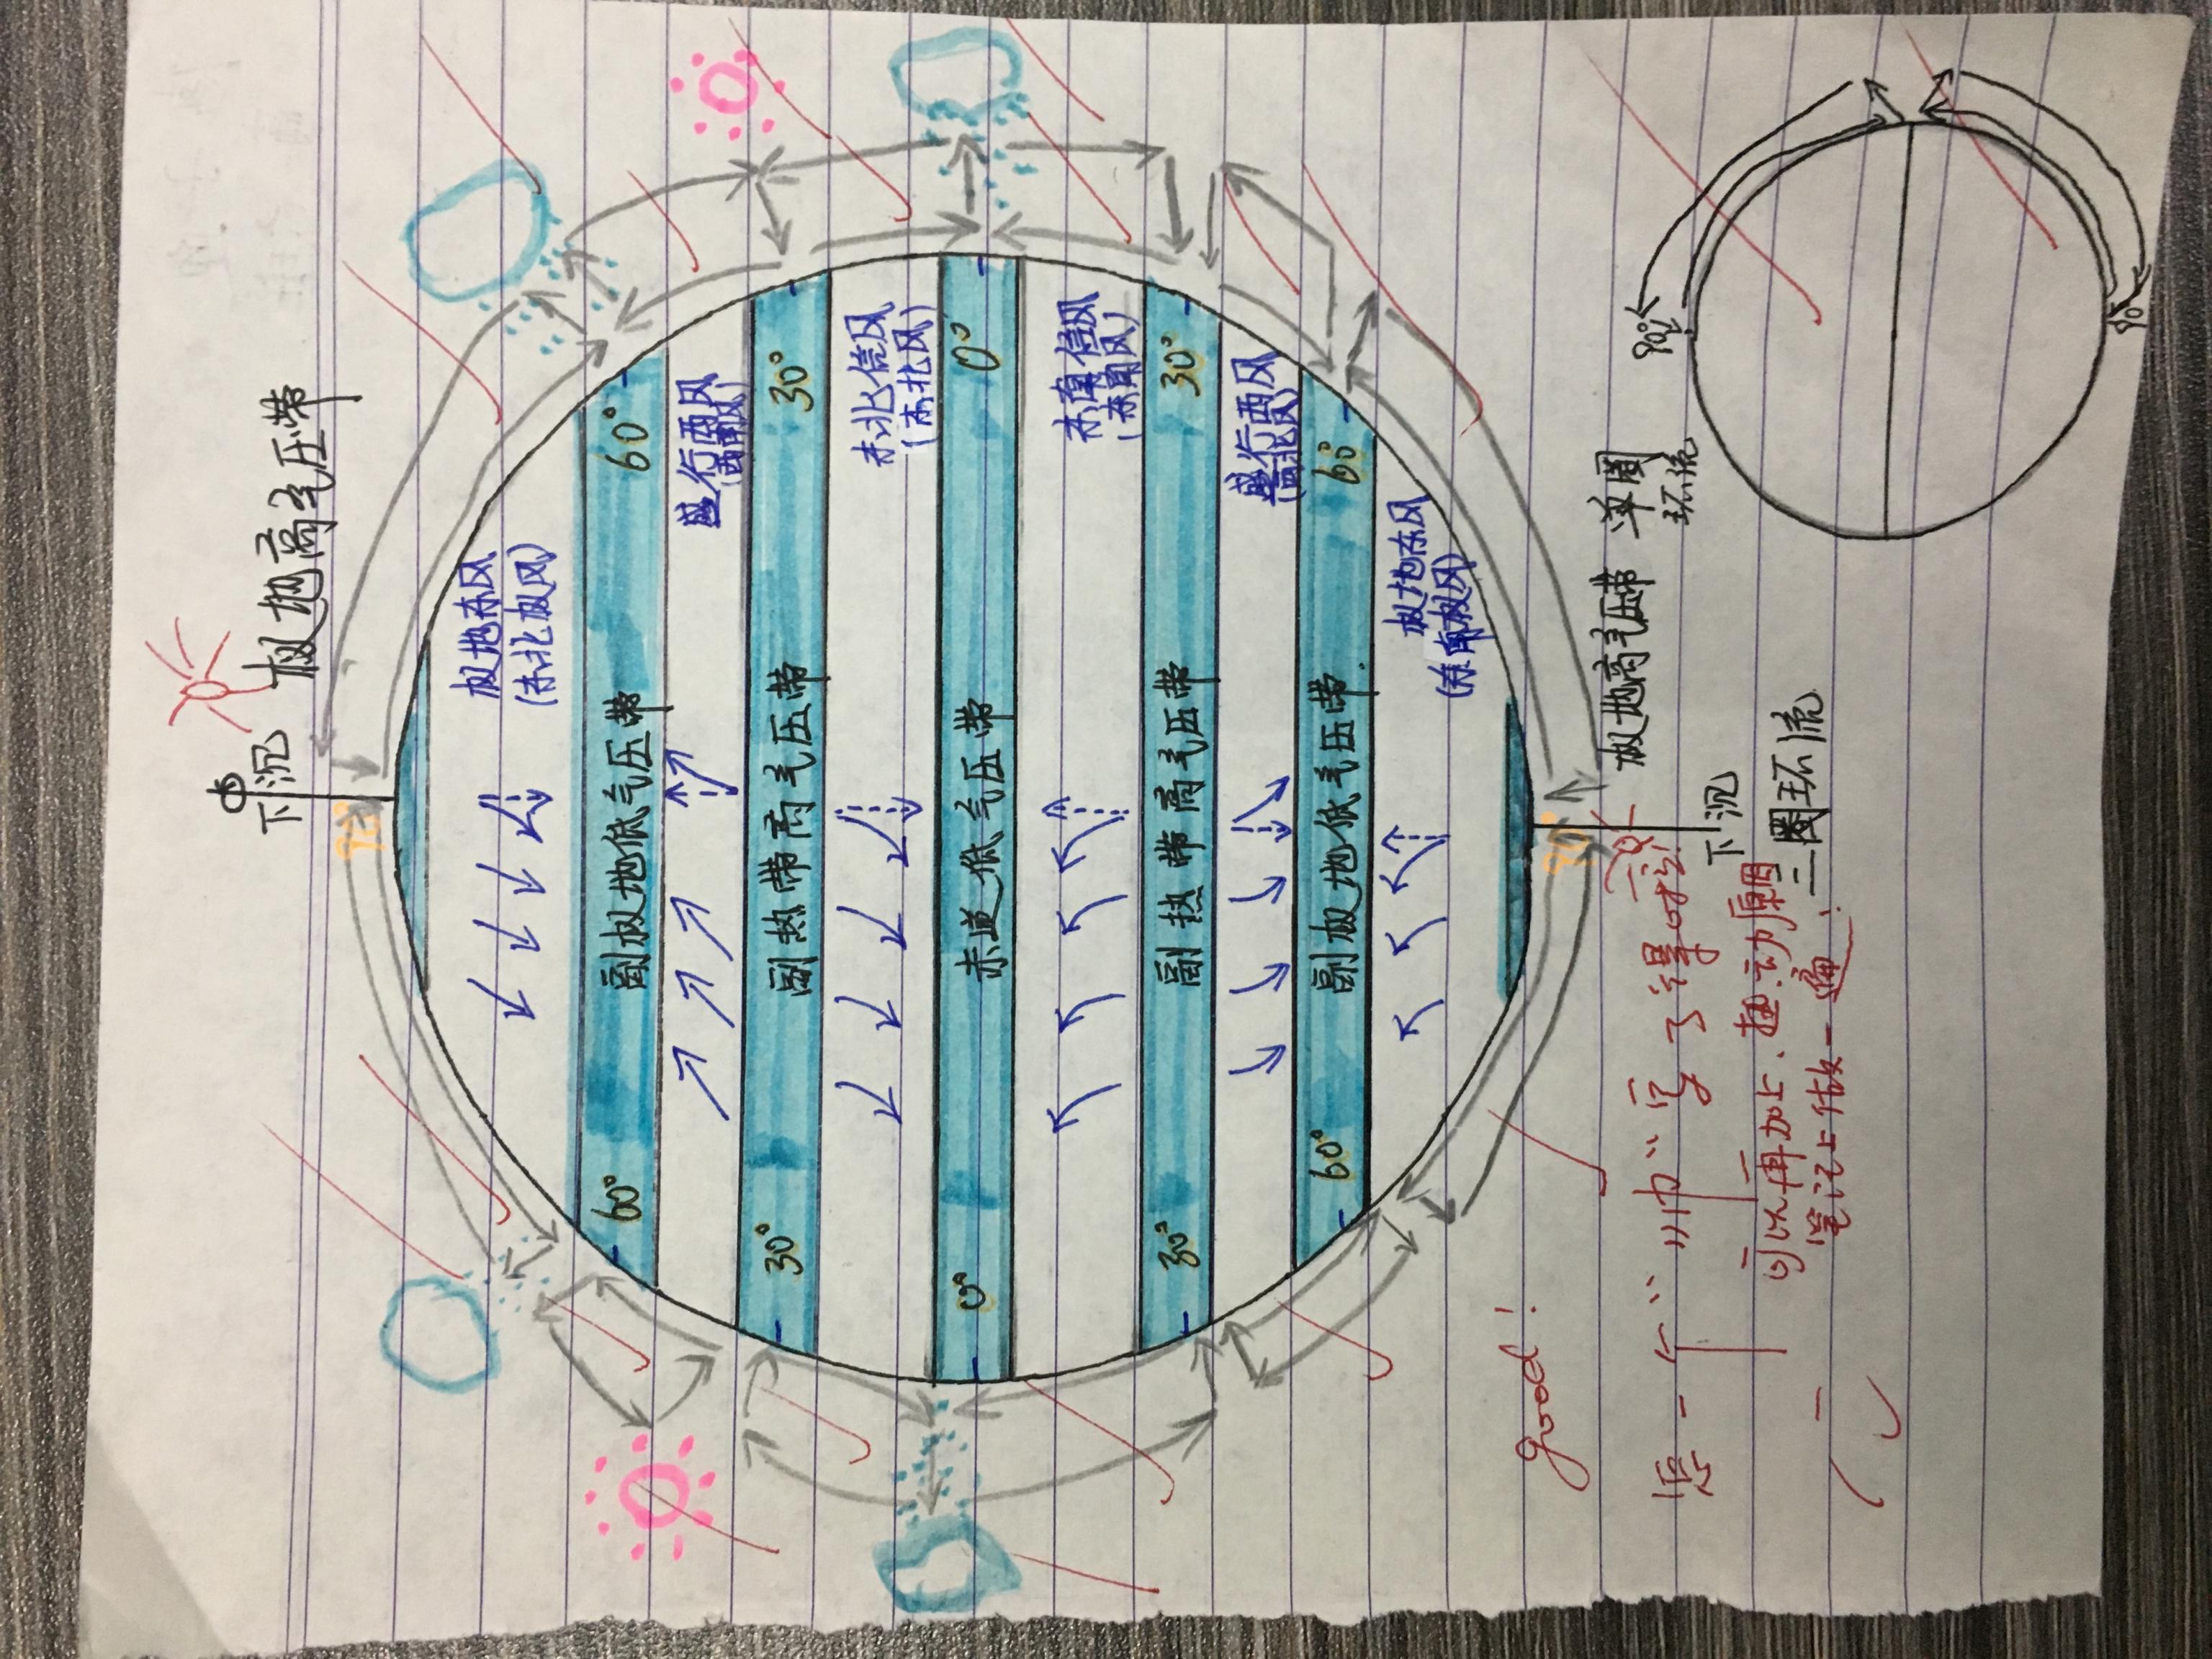 下沉
极地高气压带
90°
极地东风
(东北极风)
60°
副极地低气压带
60°
盛行西风
(西南风)
30°
副热带高气压带
30°
东北信风
(东北风)
0°
赤道低气压带
0°
东南信风
(东南风)
30°
副热带高气压带
30°
盛行西风
(西北风)
60°
副极地低气压带
60°
极地东风
(东南极风)
90°
极地高气压带
下沉
三圈环流
单圈
环流
90°
90°
good!
可以再加上
笔记上做一遍!